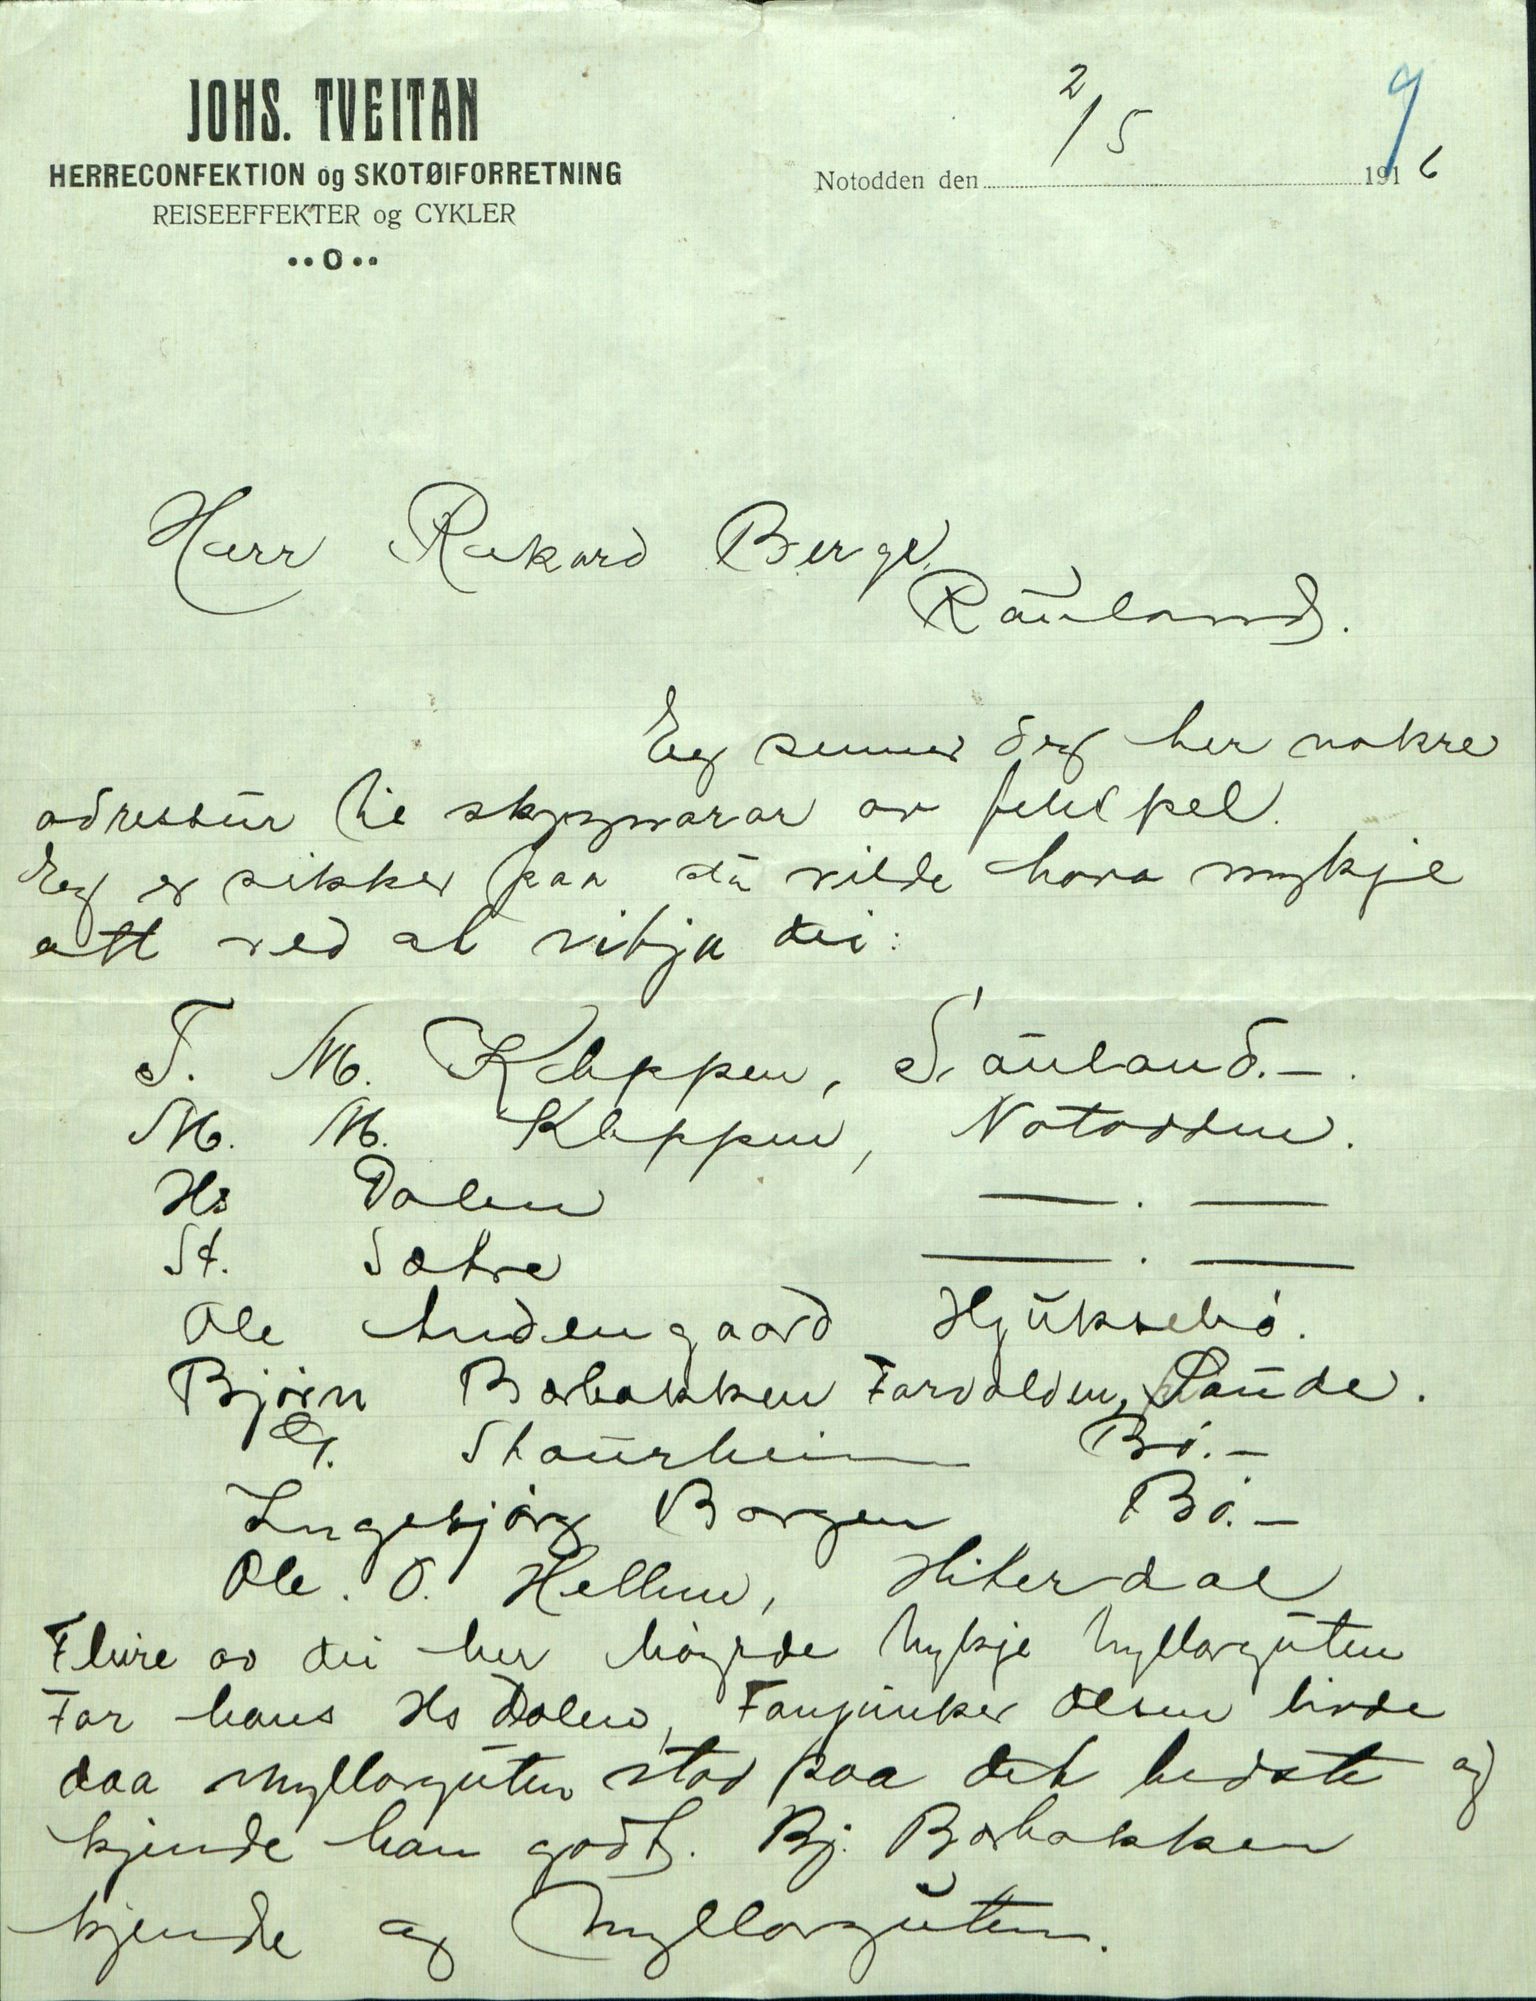 JOHS. TVEITAN
HERRECONFEKTION og SKOTØIFORRETNING
REISEEFFEKTER og CYKLER
Notodden den 2/5 1916
9
Herr Rikard Berge,
Rauland.
Eg senner deg her nokre
adressur til skygnarar av felespel.
Eg er sikker paa du vilde hava mykje
att ved at vitja dei:
T. M. Kleppen, Sauland. —.
M. M. Kleppen, Notodden.
Hs Dalen — . —
St. Sætre — . —
Ole Lindengaard Hjuksebø.
Bjørn Bærbakken Farvolden, Saude.
G. Staurheim Bø. —
Ingebjørg Borgen Bø. —
Ole. O. Hellene, Hiterdal
Fleire av dei her høyrde mykje Myllarguten
Far hans Hs Dalen, Fanjunker Olsen livde
daa Myllarguten stod paa det bedste og
kjende han godt. Bj. Bærbakken
kjende og Myllarguten.